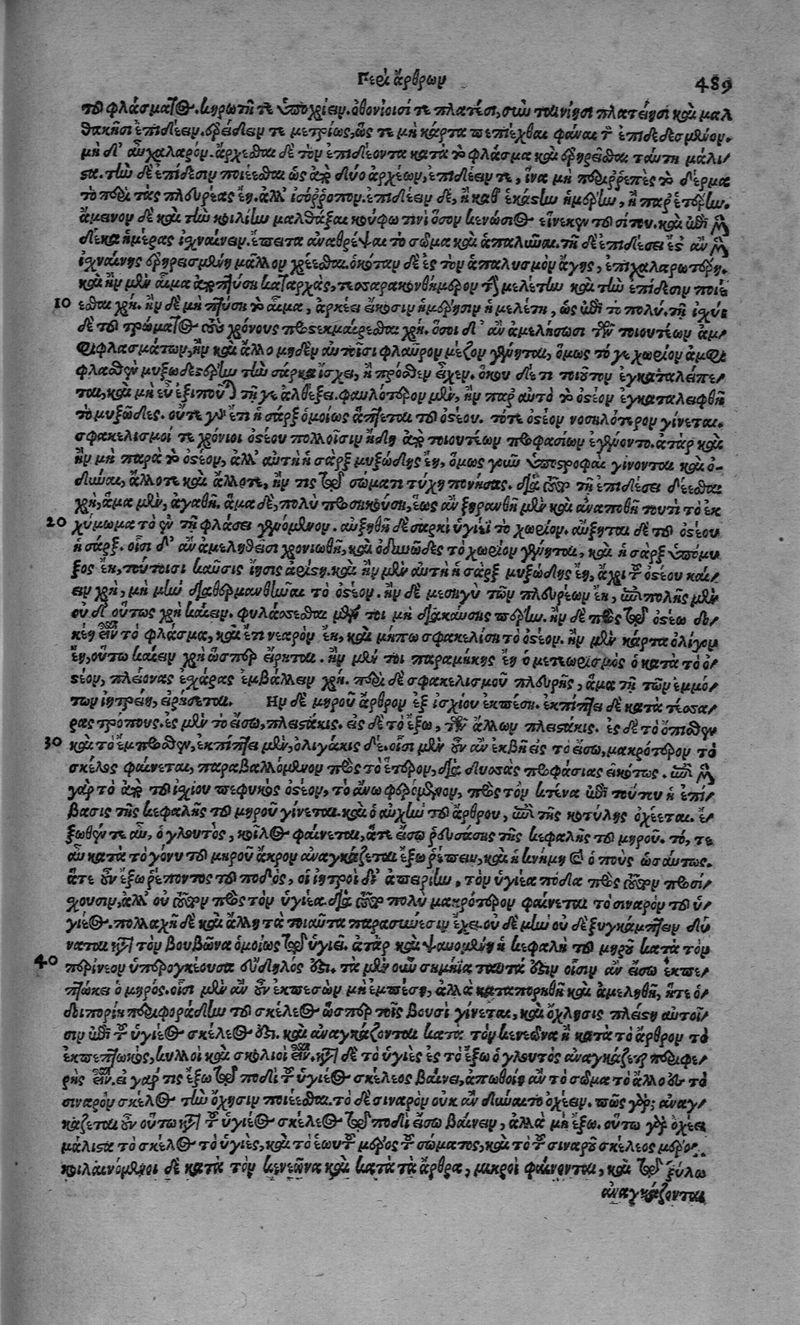 Περὶ ἄρθρων 489
τοῦ φλάσματος. κηρωτῇ τε ὑποχρίειν. ὀθονίοισί τε πλατέσι, σὺν ταινίῃσι πλατείῃσι καὶ μαλ
θακῇσι ἐπιδέειν. ἐρείδειν τε μετρίως, ὥς τε μὴ κάρτα πεπιέχθαι φάναι τὸν ἐπιδεδεσμένον.
μὴ δ' αὖ χαλαρόν. ἄρχεσθαι δὲ τὸν ἐπιδέοντα κατὰ τὸ φλάσμα καὶ ἐρηρεῖσθαι ταύτῃ μάλι/
στα. τὴν δὲ ἐπίδεσιν ποιέεσθαι ὡς ἀπὸ δύο ἀρχέων, ἐπιδέειν τε, ἵνα μὴ περιῤῥεπὲς τὸ δέρμα
τὸ περὶ τὰς πλευρέας ἔῃ. ἀλλ' ἰσόῤῥοπον. ἐπιδέειν δὲ, ἢ καθ' ἑκάστην ἡμέρην, ἢ παρ' ἑτέρην.
ἄμεινον δὲ καὶ τὴν κοιλίην μαλθάξαι κούφῳ τινὶ ὅσον κενώσιος εἵνεκεν τοῦ σίτου. καὶ ἐπὶ μὲν
δέκα ἡμέρας ἰσχναίνειν. ἔπειτα ἀναθρέψαι τὸ σῶμα καὶ ἁπαλῦναι. τῇ δὲ ἐπιδέσει ἐς ἂν μὲν
ἰσχναίνῃς ἐρηρεισμένῃ μᾶλλον χρέεσθαι. ὁκόταν δὲ ἐς τὸν ἁπαλυσμὸν ἄγῃς, ἐπιχαλαρωτέρῃ.
καὶ ἢν μὲν αἷμα ἀποπτύσῃ καταρχὰς, τεσσαρακονθήμερον τὴν μελέτην καὶ τὴν ἐπίδεσιν ποιέ
10 εσθαι χρή. ἢν δὲ μὴ πτύσῃ τὸ αἷμα, ἀρκέει εἴκοσιν ἡμέρῃσιν ἡ μελέτη, ὡς ἐπὶ τὸ πολύ. τῇ ἰσχύϊ
δὲ τοῦ τρώματος τοὺς χρόνους προτεκμαίρεσθαι χρή. ὅσοι δ' ἂν ἀμελήσωσι τῶν τοιουτέων ἀμ/
φιφλασμάτων, ἢν καὶ ἄλλο μηδὲν αὐτέοισι φλαῦρον μέζον γένηται, ὅμως τό γε χωρίον ἀμφι
φλασθὲν μυξωδεστέρην τὴν σάρκα ἴσχει, ἢ πρόσθεν εἶχεν. ὅκου δέ τι τοιοῦτον ἐγκαταλείπε/
ται, καὶ μὴ εὖ ἐξιποῦται τῇ γε ἀλθέξει. φαυλότερον μὲν, ἢν παρ' αὐτὸ τὸ ὀστέον ἐγκαταλειφθῇ
τὸ μυξῶδες. οὔτε γὰρ ἔτι ἡ σὰρξ ὁμοίως ἅπτεται τοῦ ὀστέου. τότε ὀστέον νοσηλότερον γίνεται.
σφακελισμοί τε χρόνιοι ὀστέου πολλοῖσιν ἤδη ἀπὸ τοιουτέων προφασίων ἐγένοντο. ἀτὰρ καὶ
ἢν μὴ παρὰ τὸ ὀστέον, ἀλλ' αὐτὴ ἡ σὰρξ μυξώδης ἔῃ, ὅμως γοῦν ὑποτροφαὶ γίνονται καὶ ὀ/
δύναι, ἄλλοτε καὶ ἄλλοτε, ἤν τις τῷ σώματι τύχῃ πονήσας. διὰ τοῦτο τῇ ἐπιδέσει δέεσθαι
χρὴ, ἅμα μὲν, ἀγαθῇ. ἅμα δὲ, πολὺ προσηκούσῃ, ἕως ἂν ξηρανθῇ μὲν καὶ ἀναποθῇ τουτὶ τὸ ἐκ
20 χύμωμα τὸ ἐν τῇ φλάσει γενόμενον. αὐξηθῇ δὲ σαρκὶ ὑγιέϊ τὸ χωρίον. ἅψηται δὲ τοῦ ὀστέου
ἡ σάρξ. οἷσι δ' ἂν ἀμεληθεῖσι χρονιωθῇ, καὶ ὀδυνῶδες τὸ χωρίον γένηται, καὶ ἡ σὰρξ ὑπόμυ/
ξος ἔῃ, τούτοισι καῦσις ἴησις ἀρίστη. καὶ ἢν μὲν αὐτὴ ἡ σὰρξ μυξώδης ἔῃ, ἄχρι τοῦ ὀστέου καί/
ειν χρὴ, μὴ μὴν διαθερμανθῆναι τὸ ὀστέον. ἢν δὲ μεσηγὺ τῶν πλευρέων ἔῃ, ἐπιπολῆς μὲν
οὐδ' οὕτως χρὴ καίειν. φυλάσσεσθαι μέν τοι μὴ διακαύσῃς πέρην. ἢν δὲ πρὸς τῷ ὀστέῳ δο/
κέῃ εἶναι τὸ φλάσμα, καὶ ἔτι νεαρὸν ἔῃ, καὶ μήπω σφακελίσῃ τὸ ὀστέον. ἢν μὲν κάρτα ὀλίγον
ἔῃ, οὕτω καίειν χρὴ ὥσπερ εἴρηται. ἢν μέν τοι παραμήκης ἔῃ ὁ μετεωρισμὸς ὁ κατὰ τὸ ὀ/
στέον, πλέονας ἐσχάρας ἐμβάλλειν χρή. περὶ δὲ σφακελισμοῦ πλευρῆς, ἅμα τῇ τῶν ἐμμό/
των ἰητρείῃ, εἰρήσεται. Ἢν δὲ μηροῦ ἄρθρον ἐξ ἰσχίου ἐκπέσῃ. ἐκπίπτει δὲ κατὰ τέσσα/
ρας τρόπους. ἐς μὲν τὸ ἔσω, πλειστάκις. ἐς δὲ τὸ ἔξω, τῶν ἄλλων πλειστάκις. ἐς δὲ τὸ ὄπισθεν
30 καὶ τὸ ἔμπροσθεν, ἐκπίπτει μὲν, ὀλιγάκις δέ. οἷσι μὲν οὖν ἂν ἐκβῇ ἐς τὸ ἔσω, μακρότερον τὸ
σκέλος φαίνεται, παραβαλλόμενον πρὸς τὸ ἕτερον, διὰ δισσὰς προφάσιας εἰκότως. ἐπὶ μὲν
γὰρ τὸ ἀπὸ τοῦ ἰσχίου πεφυκὸς ὀστέον, τὸ ἄνω φερόμενον, πρὸς τὸν κτένα ἐπὶ τούτου ἡ ἐπί/
βασις τῆς κεφαλῆς τοῦ μηροῦ γίνεται. καὶ ὁ αὐχὴν τοῦ ἄρθρου, ἐπὶ τῆς κοτύλης ὀχέεται. ἔ/
ξωθέν τε αὖ, ὁ γλουτὸς, κοῖλος φαίνεται, ἅτε ἔσω ῥεψάσης τῆς κεφαλῆς τοῦ μηροῦ. τό, τε
αὖ κατὰ τὸ γόνυ τοῦ μηροῦ ἄκρον ἀναγκάζεται ἔξω ῥέπειν, καὶ ἡ κνήμη καὶ ὁ ποὺς ὡσαύτως.
ἅτε οὖν ἔξω ῥέποντος τοῦ ποδὸς, οἱ ἰητροὶ δι' ἀπειρίην, τὸν ὑγιέα πόδα πρὸς τοῦτον προσί/
σχουσιν, ἀλλ' οὐ τοῦτον πρὸς τὸν ὑγιέα. διὰ τοῦτο πολὺ μακρότερον φαίνεται τὸ σιναρὸν τοῦ ὑ/
γιέος. πολλαχῆ δὲ καὶ ἄλλῃ τὰ τοιαῦτα παρασύνεσιν ἔχει. οὐδὲ μὴν οὐδὲ ξυγκάμπτειν δύ
ναται κατὰ τὸν βουβῶνα ὁμοίως τῷ ὑγιεῖ. ἀτὰρ καὶ ψαυομένη ἡ κεφαλὴ τοῦ μηροῦ κατὰ τὸν
40 περίνεον ὑπερογκέουσα εὔδηλός ἐστι. τὰ μὲν οὖν σημήϊα ταῦτά ἐστιν οἷσιν ἂν ἔσω ἐκπε/
πτώκει ὁ μηρός. οἷσι μὲν ἂν οὖν ἐκπεσὼν μὴ ἐμπέσῃ, ἀλλὰ καταπορηθῇ καὶ ἀμεληθῇ, ἥτε ὁ/
δοιπορίη περιφοράδην τοῦ σκέλεος ὥσπερ τοῖς βουσὶ γίνεται, καὶ ὄχλησις πλείστη αὐτοῖ/
σιν ἐπὶ τοῦ ὑγιέος σκέλεός ἐστι. καὶ ἀναγκάζονται κατὰ τὸν κενεῶνα ἢ κατὰ τὸ ἄρθρον τὸ
ἐκπεπτωκὸς, κυλλοὶ καὶ σκολιοὶ εἶναι. κατὰ δὲ τὸ ὑγιὲς ἐς τὸ ἔξω ὁ γλουτὸς ἀναγκάζεται περιφε/
ρὴς εἶναι. εἰ γάρ τις ἔξω τῷ ποδὶ τοῦ ὑγιέος σκέλεος βαίνει, ἀπωθοίη ἂν τὸ σῶμα τὸ ἄλλο ἐς τὸ
σιναρὸν σκέλος τὴν ὄχησιν ποιέεσθαι. τὸ δὲ σιναρὸν οὐκ ἂν δύναιτο ὀχέειν. πῶς γάρ; ἀναγ/
κάζεται οὖν οὕτω κατὰ τοῦ ὑγιέος σκέλεος τῷ ποδὶ ἔσω βαίνειν, ἀλλὰ μὴ ἔξω. οὕτω γὰρ ὀχέει
μάλιστα τὸ σκέλος τὸ ὑγιὲς, καὶ τὸ ἑωυτοῦ μέρος τοῦ σώματος, καὶ τὸ τοῦ σιναροῦ σκέλεος μέρος.
κοιλαινόμενοι δὲ κατὰ τὸν κενεῶνα καὶ κατὰ τὰ ἄρθρα, μικροὶ φαίνονται, καὶ τῷ ξύλῳ
ἀναγκάζονται